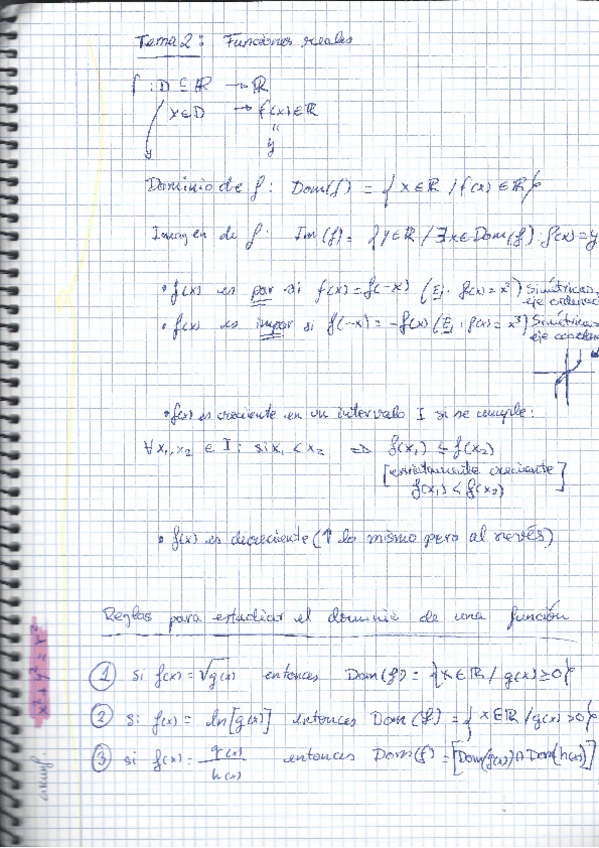 Tema 2: Funciones reales
f: D ⊆ ℝ → ℝ
x∈D → f(x)∈ℝ
"
y
Dominio de f: Dom(f) = {x∈ℝ / f(x)∈ℝ}
Imagen de f: Im(f) = {y∈ℝ / ∃x∈Dom(f). f(x)=y
• f(x) es par si f(x)=f(-x) (Ej. f(x)=x²) Simétricas
eje ordenad
• f(x) es impar si f(-x)=-f(x) (Ej. f(x)=x³) Simétricas
eje
• f(x) es creciente en un intervalo I si se cumple:
∀x₁,x₂ ∈ I: si x₁<x₂ ⇒ f(x₁) ≤ f(x₂)
[estrictamente creciente
f(x₁) < f(x₂)]
• f(x) es decreciente (↑ lo mismo pero al revés)
Reglas para estudiar el dominio de una función
① si f(x)=√g(x) entonces Dom(f) = {x∈ℝ / g(x)≥0}
② si f(x) = ln[g(x)] entonces Dom(f) = {x∈ℝ / g(x)>0}
③ si f(x) = g(x)/h(x) entonces Dom(f) = [Dom(g(x)) ∩ Dom(h(x))]
x²+y²=r²